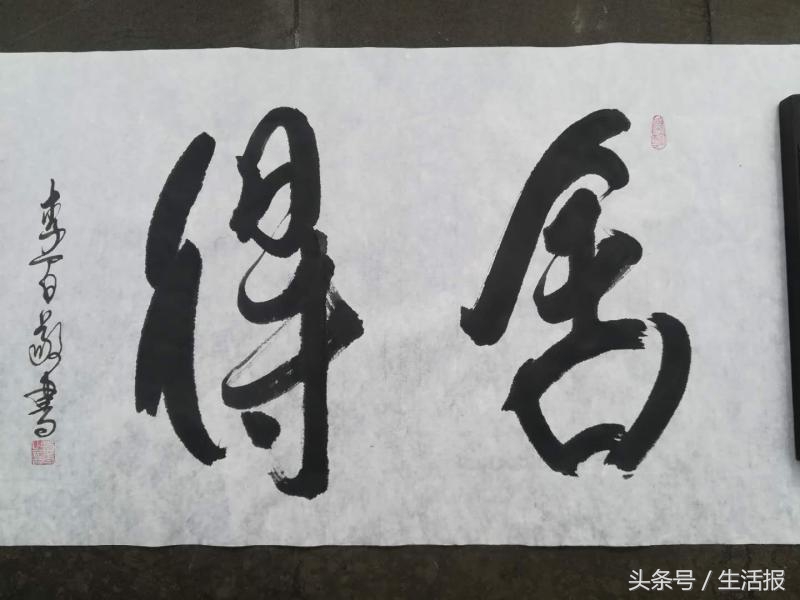 舍得
李百敬書
头条号 / 生活报